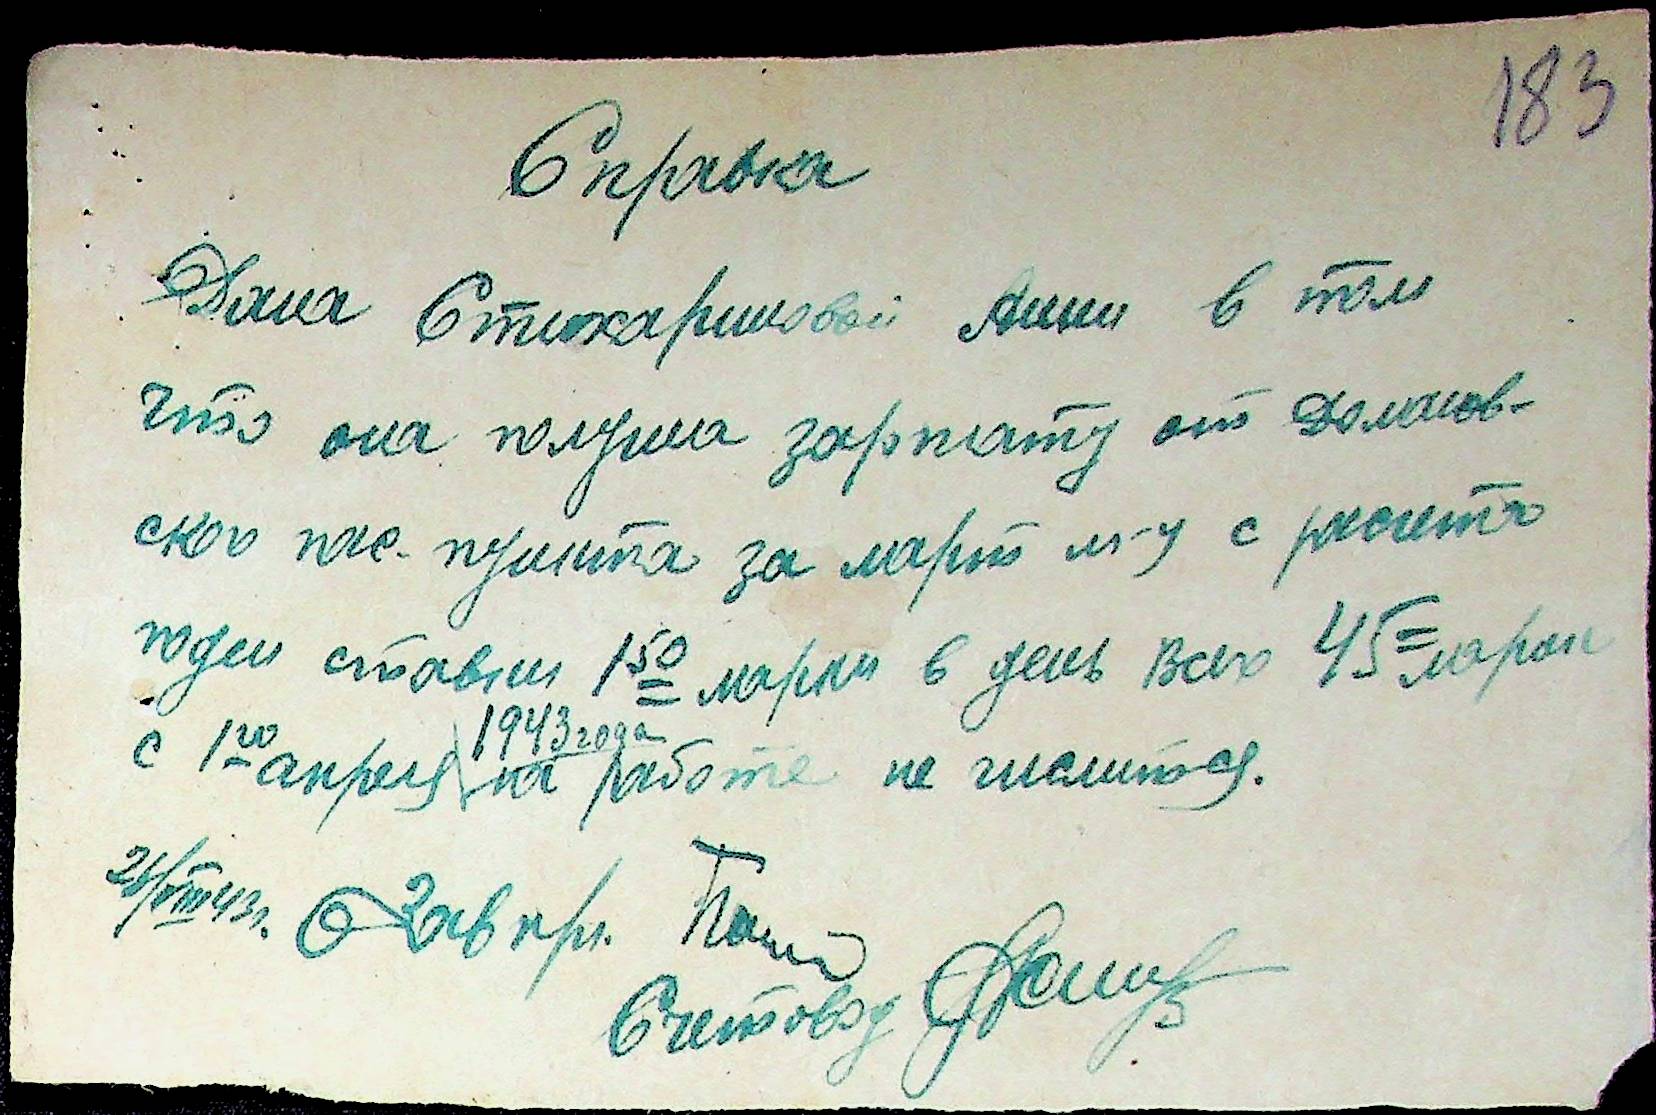 183
Справка
Дана Стихариновой Анни в том
что она получила зарплату от Доманов-
ского пос. пункта за март м-ц с расчета
поден ставки 1 50 марки в день всего 45= марок
с 1го апреля 1943 года на работе не числится.
43г. Зав пр.
Счетовод